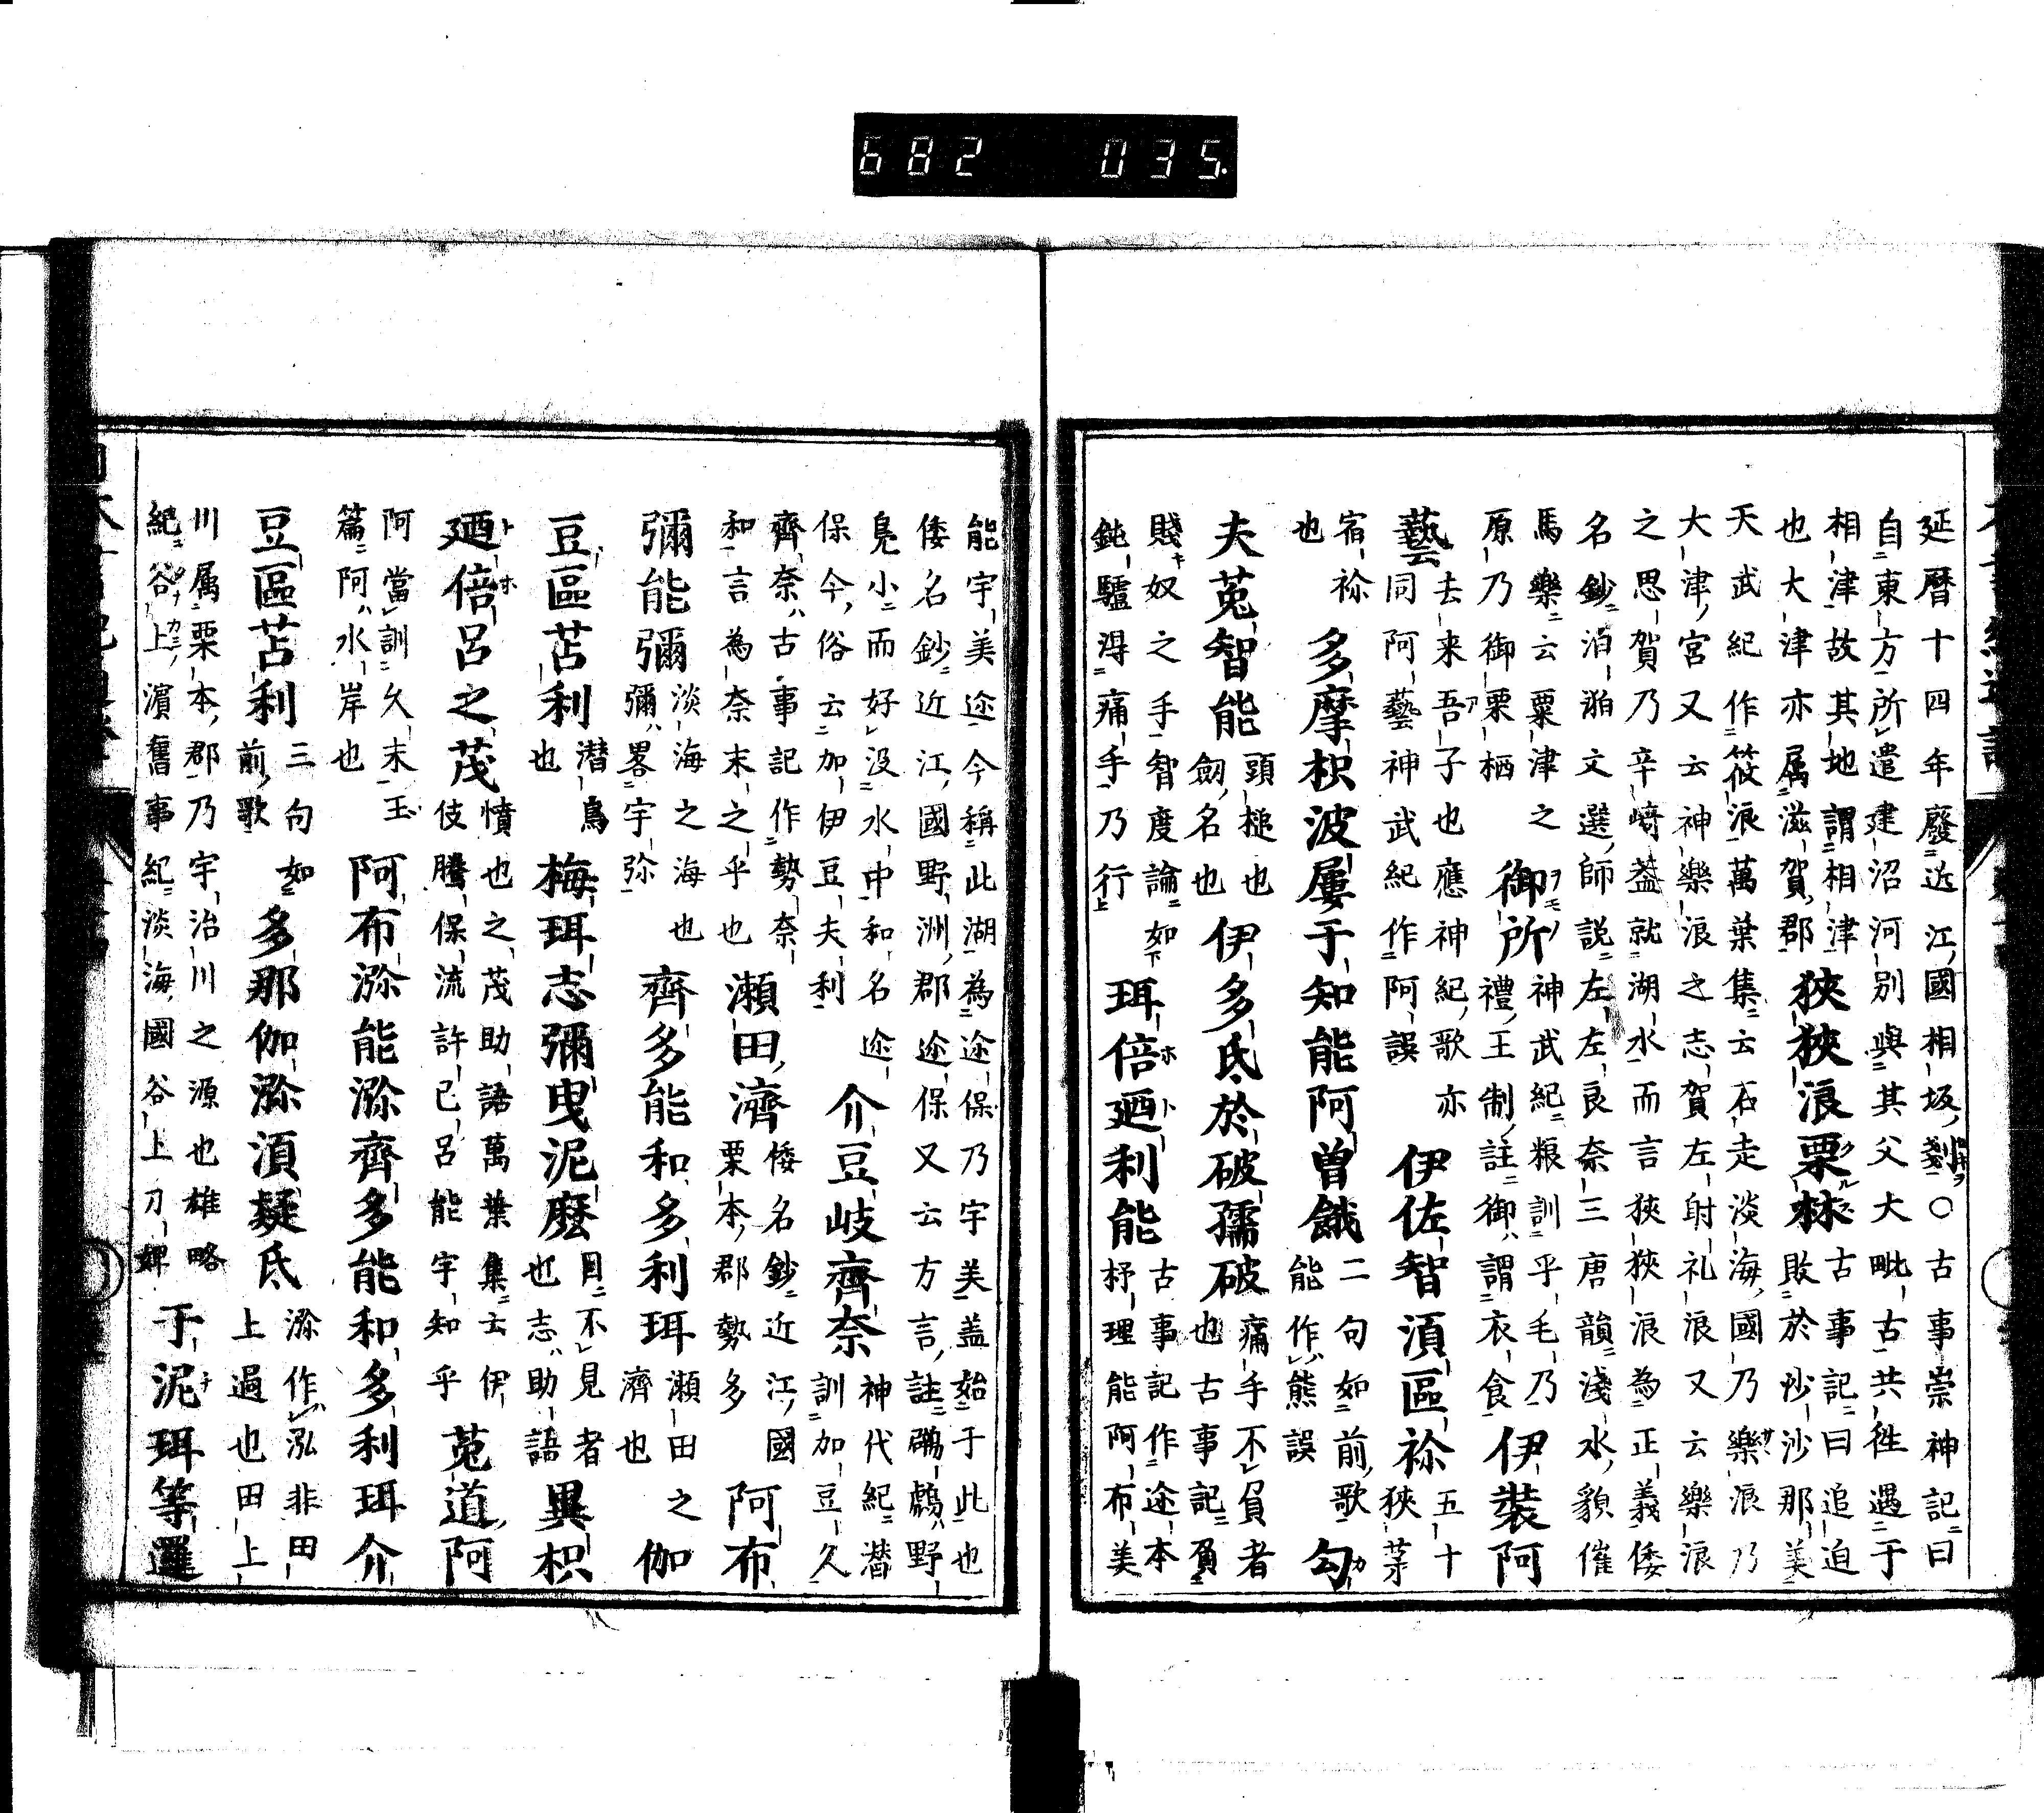 682 035.
延曆十四年廢近江國相坂剗○古事崇神記曰
自東方所遣建沼河別與其父大毗古共徃遇于
相津故其地謂相津
也大津亦属滋賀郡
狹狹浪栗林
古事記曰追迫
敗於沙沙那美
天武紀作筱浪萬葉集云石走淡海國乃樂浪乃
大津宮又云神樂浪之志賀左射礼浪又云樂浪
之思賀乃辛﨑葢就湖水而言狹狹浪為正義倭
名鈔泊湐文選師説左左良奈三唐韻淺水貌催
馬樂云粟津之
原乃御栗栖
御所
神武紀粮訓乎毛乃
禮王制註御謂衣食
伊裝阿
藝
去来吾子也應神紀歌亦
同阿藝神武紀作阿誤
伊佐智湏區祢
五十
狹茅
宿祢
也
多摩枳波屢于知能阿曽餓
二句如前歌
能作熊誤
勾
夫菟智能
頭槌也
劔名也
伊多氐於破孺破
痛手不負者
也古事記負
賤奴之手智度論如
鈍驢得痛手乃行
珥倍廼利能
古事記作途本
杼理能阿布美
能宇美途今稱此湖為途保乃宇美盖始于此也
倭名鈔近江國野洲郡途保又云方言註鸊鷉野
鳬小而好没水中和名途
保今俗云加伊豆夫利
介豆岐齊奈
神代紀潜
訓加豆久
齊奈古事記作勢奈
和言為奈末之乎也
瀬田濟
倭名鈔近江國
栗本郡勢多
阿布
彌能彌
淡海之海也
彌畧宇弥
齊多能和多利珥
瀬田之
濟也
伽
豆區苫利
潜鳥
也
梅珥志彌曳泥麽
目不見者
也志助語
異枳
廼倍呂之茂
憤也之茂助語萬葉集云伊
伎騰保流許己呂能宇知乎
菟道阿
阿當訓久末玉
篇阿水岸也
阿布瀰能瀰齊多能和多利珥介
豆區苫利
三句如
前歌
多那伽瀰湏疑氐
瀰作泓非田
上過也田上
川属栗本郡乃宇治川之源也雄略
紀谷上濵舊事紀淡海國谷上刀婢
于泥珥等邏